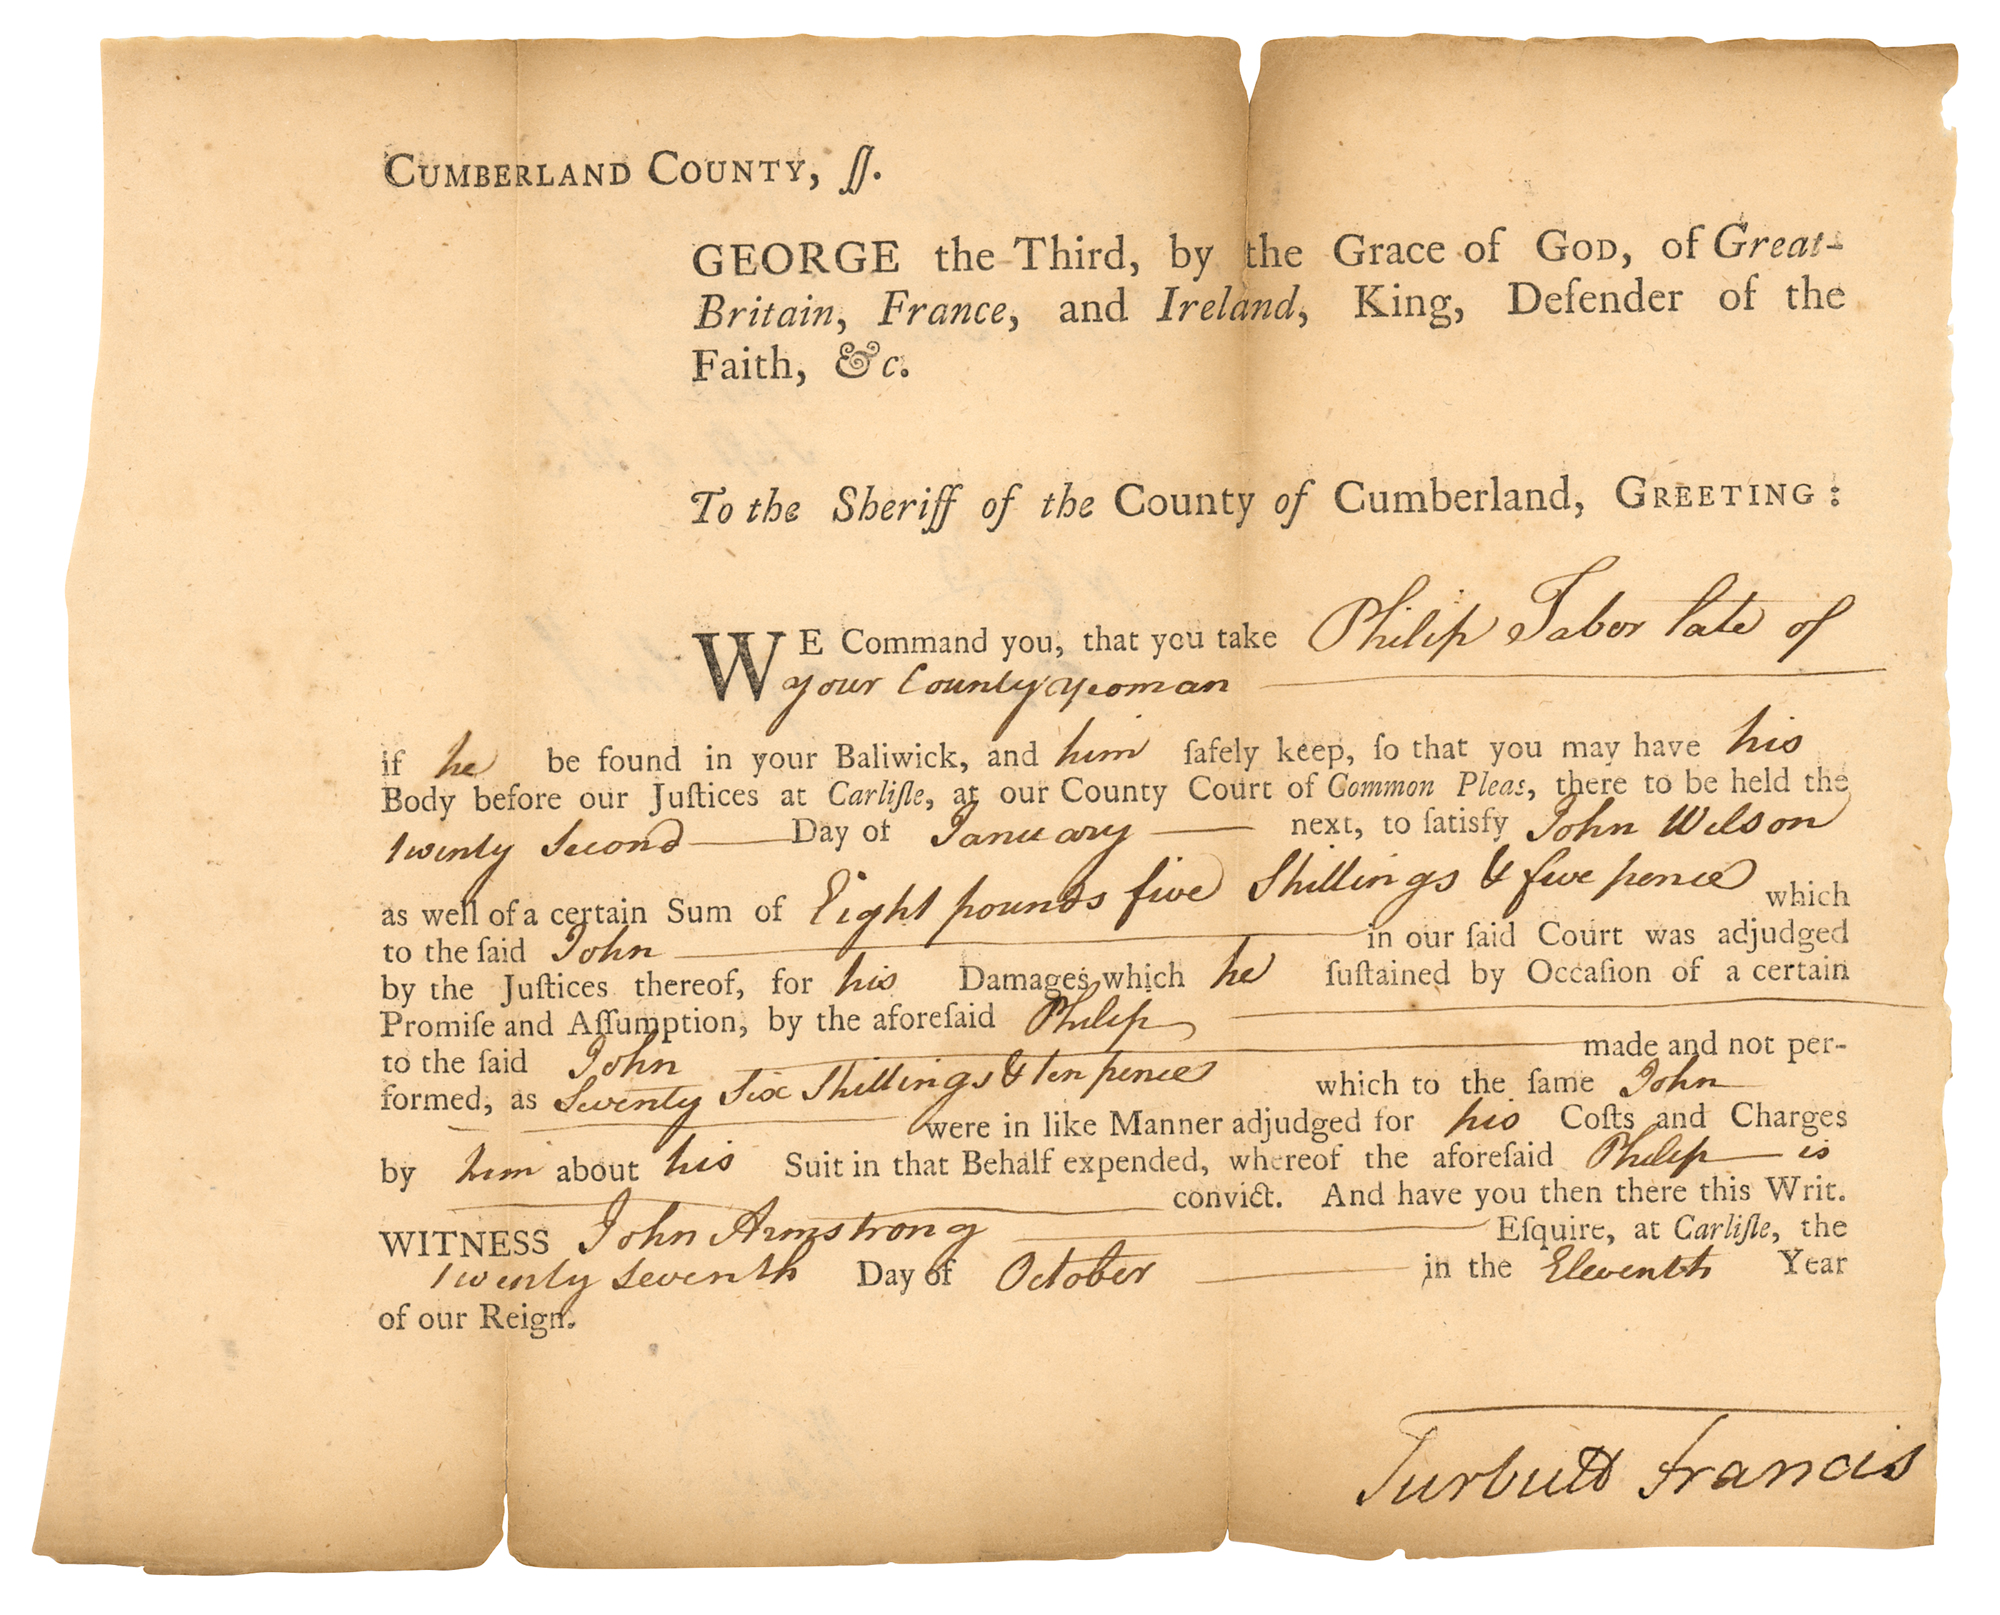 CUMBERLAND COUNTY, ſſ.
GEORGE the Third, by the Grace of GOD, of Great-
Britain, France, and Ireland, King, Defender of the
Faith, &c.
To the Sheriff of the County of Cumberland, GREETING:
WE Command you, that you take Philip Tabor late of
your County Yeoman
if he be found in your Baliwick, and him ſafely keep, ſo that you may have his
Body before our Juſtices at Carliſle, at our County Court of Common Pleas, there to be held the
twenty Second Day of January next, to ſatisfy John Wilson
as well of a certain Sum of Eight pounds five Shillings & five pence which
to the ſaid John in our ſaid Court was adjudged
by the Juſtices thereof, for his Damages which he ſuſtained by Occaſion of a certain
Promiſe and Aſſumption, by the aforeſaid Philip
to the ſaid John made and not per-
formed, as Seventy Six Shillings & ten pence which to the ſame John
were in like Manner adjudged for his Coſts and Charges
by him about his Suit in that Behalf expended, whereof the aforeſaid Philip is
convict. And have you then there this Writ.
WITNESS John Armstrong Eſquire, at Carliſle, the
twenty seventh Day of October in the Eleventh Year
of our Reign.
Turbutt Francis